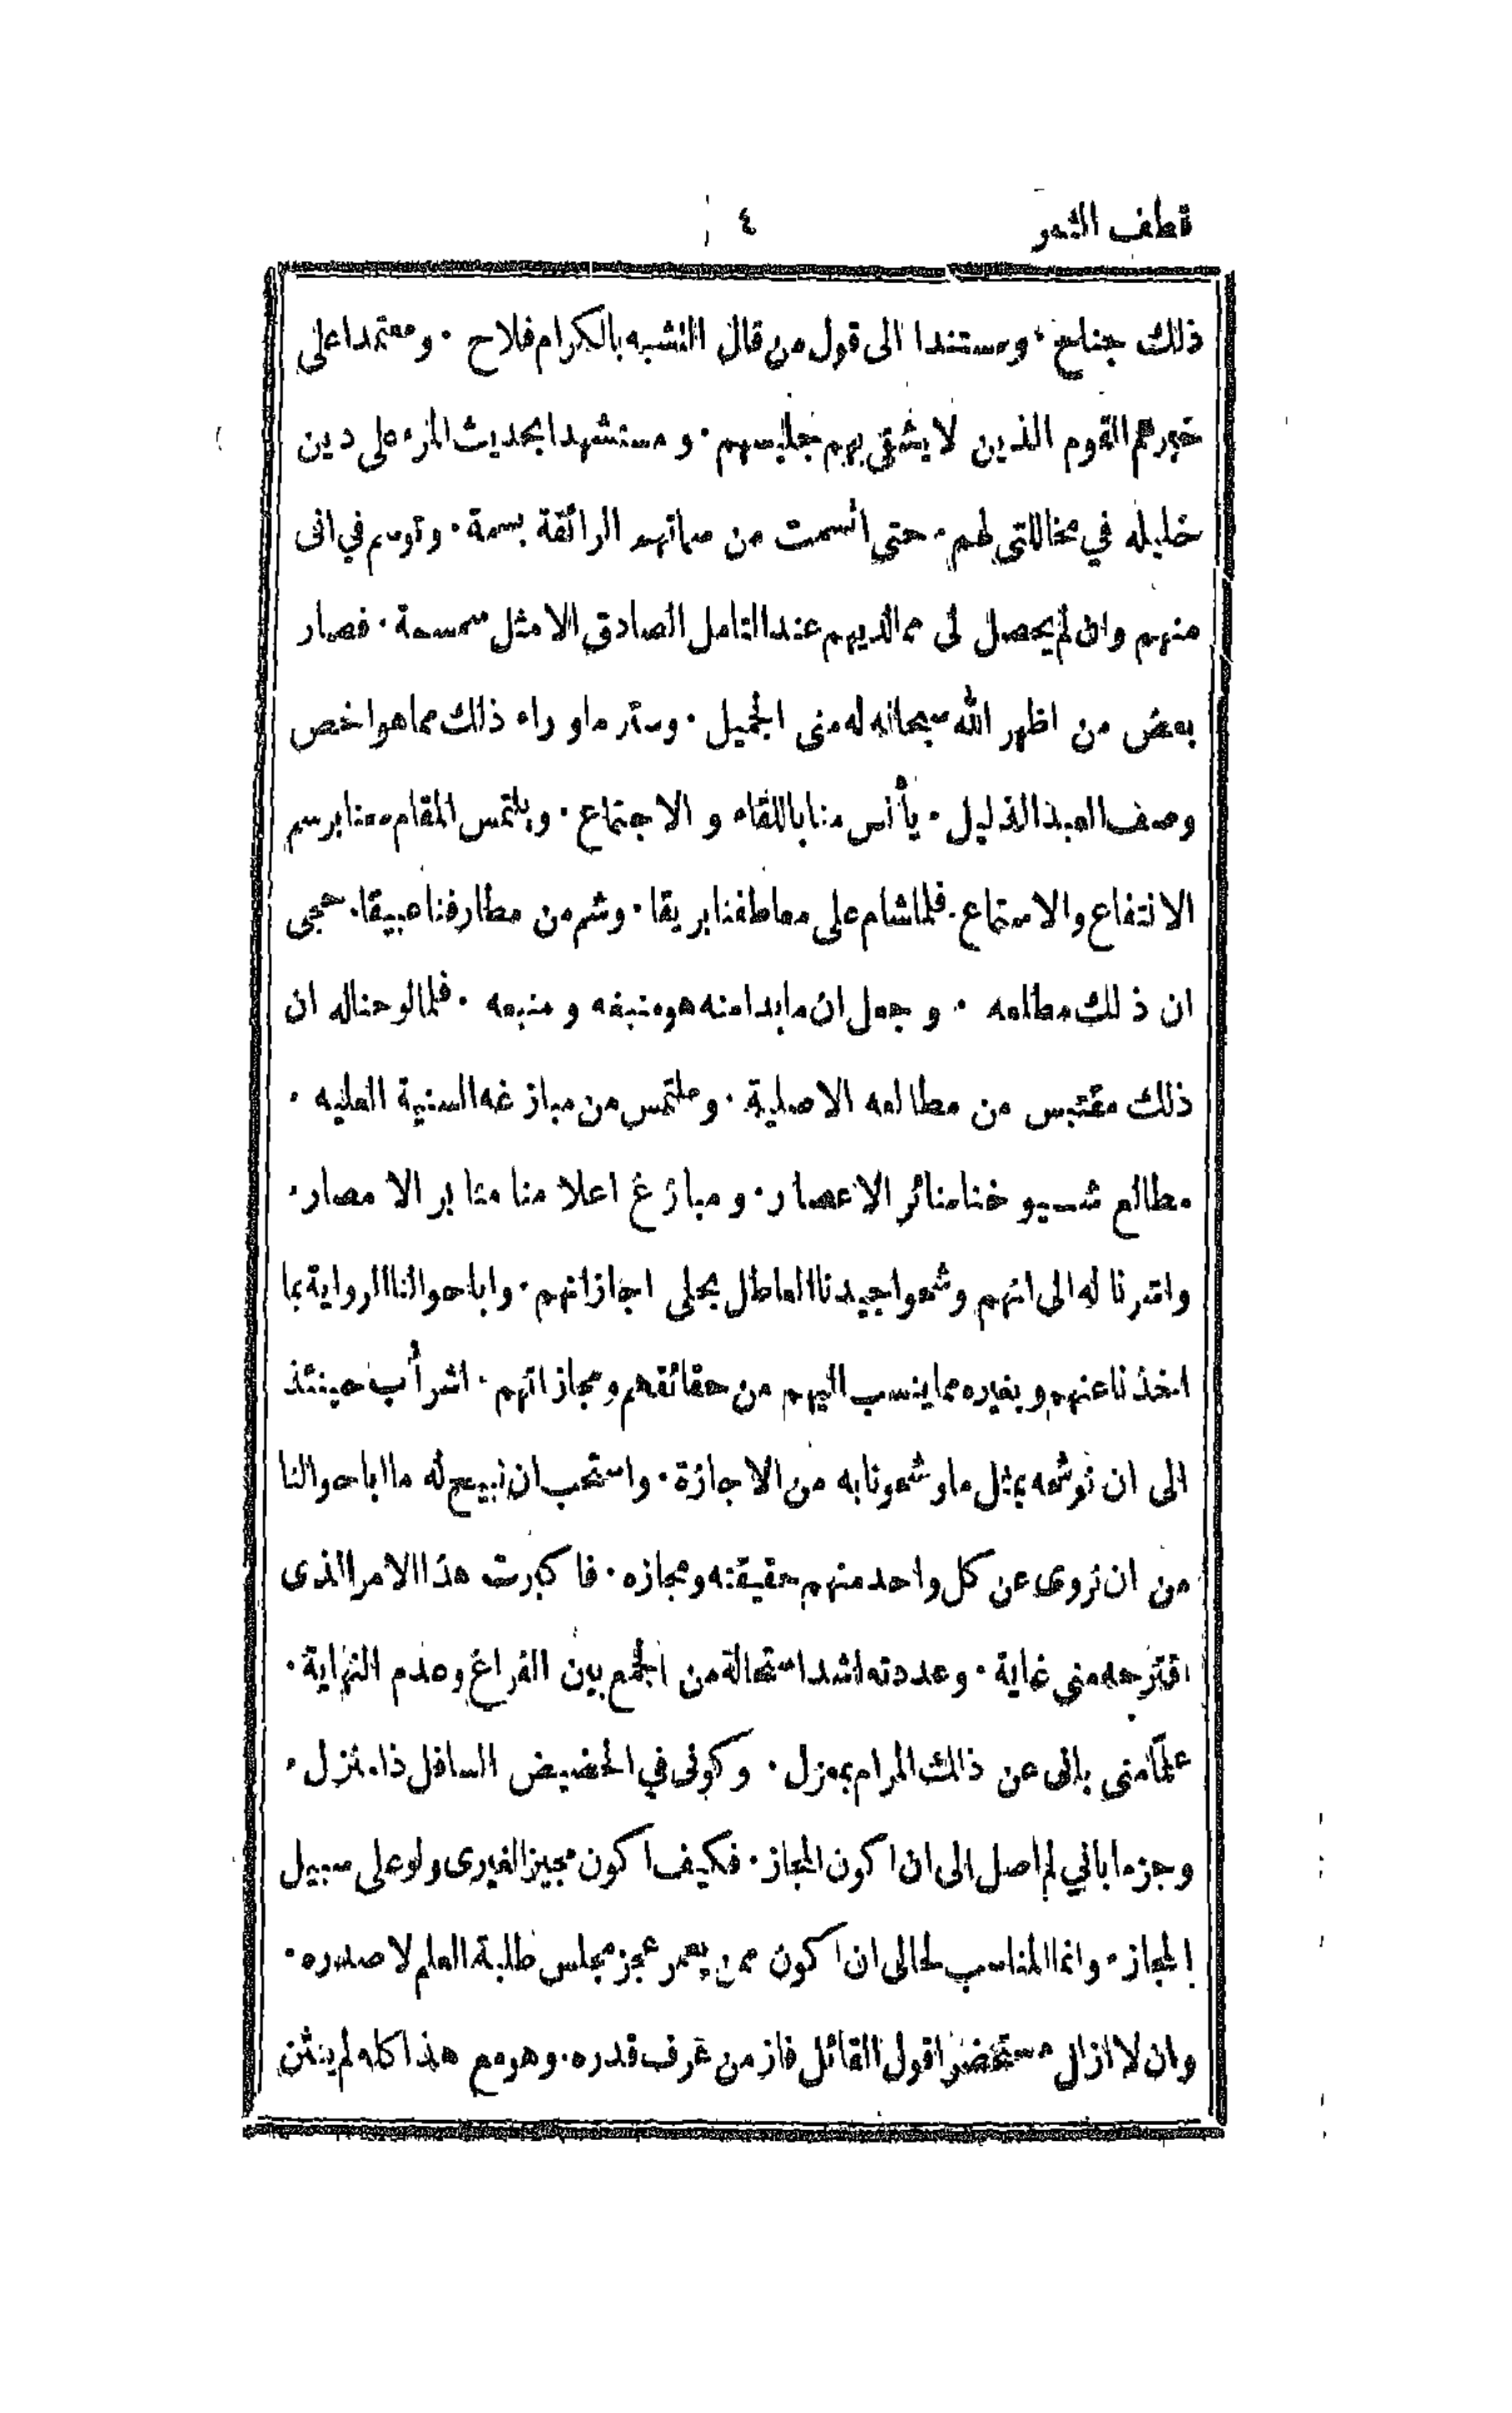 قطف الثمر ٤
ذلك جناح ٠ ومستندا الى قول من قال التشبه بالكرام فلاح ٠ ومعتمدا على
خبر هم القوم الذين لا يشقى بهم جليسهم ٠ و مستشهدا بحديث المرء على دين
خليله في مخاللتى لهم ٠ حتى اتسمت من سماتهم الرائقة بسمة ٠ وتوسم في انى
منهم وان لم يحصل لى مما لديهم عند التامل الصادق الا مثل سمسمة ٠ فصار
بعض من اظهر الله سبحانه له منى الجميل ٠ وستر ما وراء ذلك مما هو اخص
وصف العبد الذليل ٠ يأنس منا باللقاء و الاجتماع ٠ ويلتمس المقام معنا برسم
الانتفاع والاستماع ٠ فلما شام على معاطفنا بريقا ٠ وشم من مطارفنا عبيقا ٠ حجى
ان ذلك مطلعه ٠ و جعل ان ما بدا منه هو منبغه و منبعه ٠ فلما لوحنا له ان
ذلك مقتبس من مطالعه الاصلية ٠ وملتمس من مبازغه السنية العليه ٠
مطالع شيوخنا منائر الاعصار ٠ و مبازغ اعلامنا منابر الامصار ٠
واشرنا له الى انهم وشحوا جيدنا العاطل بحلى اجازاتهم ٠ واباحوا لنا الرواية بما
اخذنا عنهم و بغيره مما ينسب اليهم من حقائقهم ومجازاتهم ٠ اشرأب حينئذ
الى ان نوشحه بمثل ما وشحونا به من الاجازة ٠ واستحب ان نبيح له ما اباحوا لنا
من ان نروى عن كل واحد منهم حقيقته ومجازه ٠ فاكبرت هذا الامر الذى
اقترحه منى غاية ٠ وعددته اشد استحالة من الجمع بين الفراغ وعدم النهاية ٠
علما منى بانى عن ذلك المرام بمعزل ٠ وكونى في الحضيض السافل ذا منزل ٠
وجزما باني لم اصل الى ان اكون المجاز ٠ فكيف اكون مجيزا لغيرى ولو على سبيل
المجاز ٠ وانما المناسب لحالى ان اكون ممن يعمر عجز مجلس طلبة العلم لا صدره ٠
وان لا ازال مستحضرا قول القائل فاز من عرف قدره ٠ وهو مع هذا كله لم ينثن